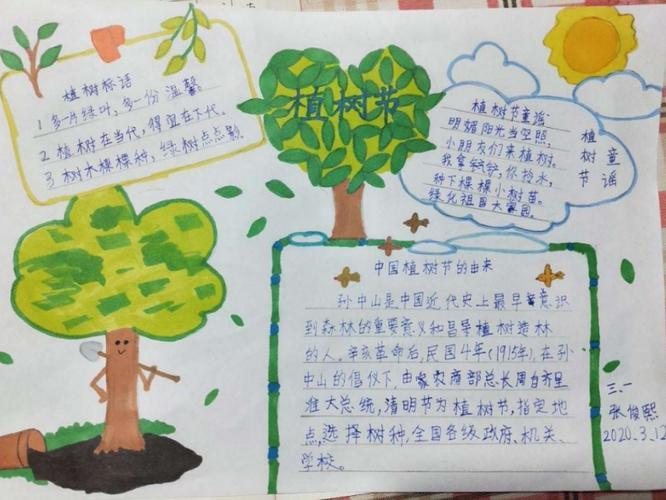 植树标语
1 多一片绿叶，多一份温馨。
2 植树在当代，得益在下代。
3 树木棵棵种，绿树点点影。
植树节
植树节童谣
明媚阳光当空照，
小朋友们来植树。
我拿锣锣，你拎水，
种下棵棵小树苗。
绿化祖国大家园。
植树节
童谣
中国植树节的由来
孙中山是中国近代史上最早意识
到森林的重要意义和倡导植树造林
的人。辛亥革命后，民国4年(1915年)，在孙
中山的倡仪下，由农商部总长周自齐呈
准大总统，清明节为植树节，指定地
点，选择树种，全国各级政府、机关、
学校。
三、一
张俊熙
2020.3.12